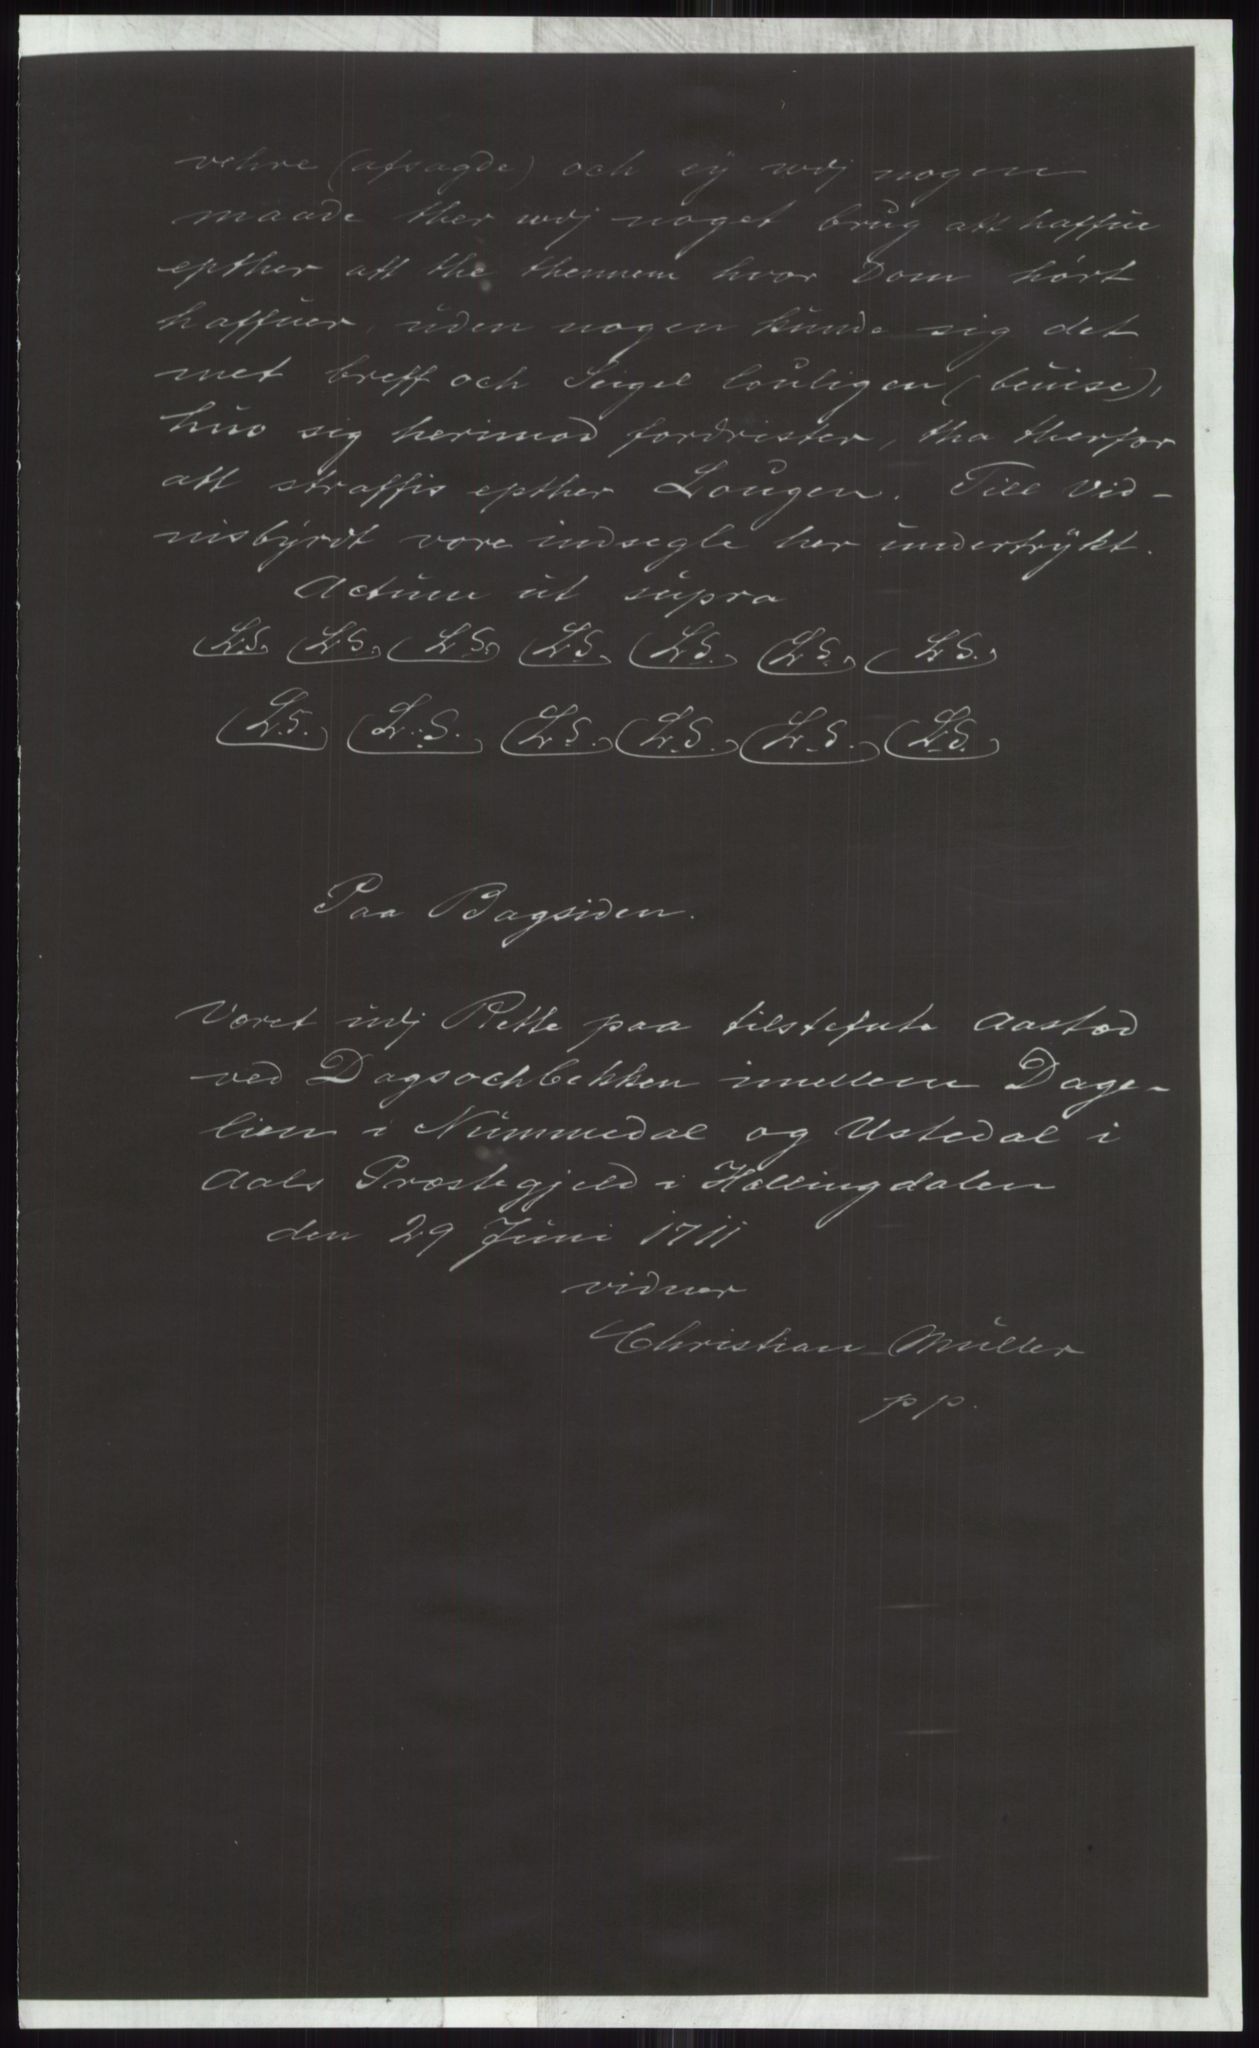 vehre (afsagde) och eÿ udj nogen
maade ther udj noget brug att haffue
epther att the thennem hvor Dom hört
haffuer, uden nogen kunde sig det
met breff och Seigel louligen (beuise),
huo sig herimod fordrister, tha therfor
att straffis epther Lougen. Till vid-
nisbÿrdt vore indsegle her undertrÿkt.
Actum ut supra
L.S. L.S. L.S. L.S. L.S. L.S. L.S.
L.S. L.S. L.S. L.S. L.S. L.S.
Paa Bagsiden.
Været udj Rette paa tilstefnte Aastæd
ved Dagsochbekken imellem Dage-
lien i Nummedal og Ustedal i
Aals Præstegjeld i Hallingdalen
den 29 Juni 1711
vidner
Christian Müller
pp.